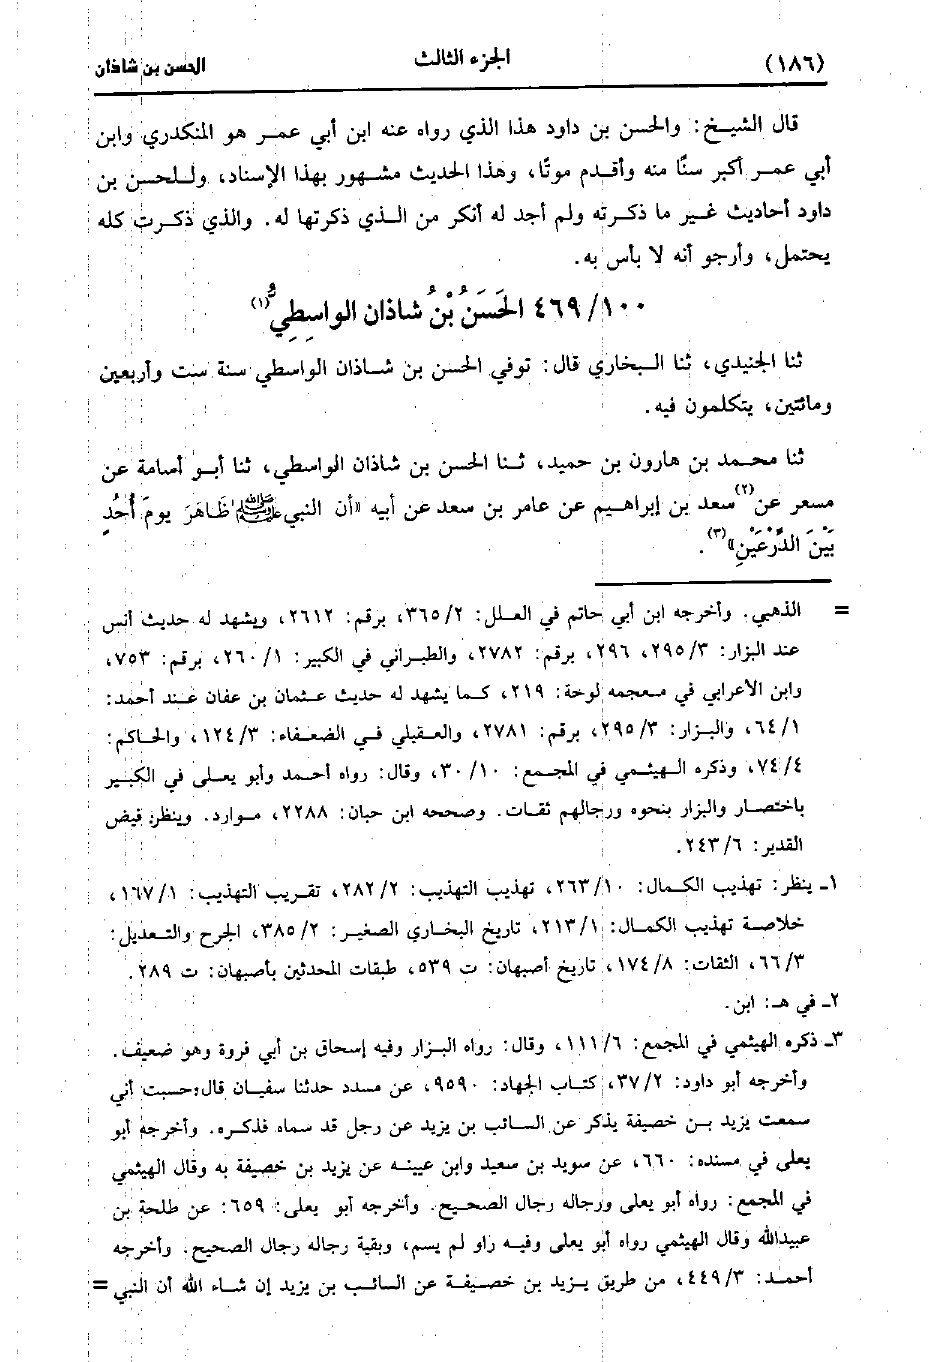 (١٨٦) الجزء الثالث الحسن بن شاذان
قال الشيخ: والحسن بن داود هذا الذي رواه عنه ابن أبي عمر هو المنكدري وابن
أبي عمر أكبر سنًا منه وأقدم موتًا، وهذا الحديث مشهور بهذا الإسناد، وللحسن بن
داود أحاديث غير ما ذكرته ولم أجد له أنكر من الذي ذكرتها له. والذي ذكرت كله
يحتمل، وأرجو أنه لا بأس به.
٤٦٩/١٠٠ الحَسَنُ بْنُ شاذان الواسِطِيُّ(١)
ثنا الجنيدي، ثنا البخاري قال: توفي الحسن بن شاذان الواسطي سنة ست وأربعين
ومائتين، يتكلمون فيه.
ثنا محمد بن هارون بن حميد، ثنا الحسن بن شاذان الواسطي، ثنا أبو أسامة عن
مسعر عن(٢) سعد بن إبراهيم عن عامر بن سعد عن أبيه «أن النبي ﷺ ظَاهَرَ يومَ أُحُدٍ
بَيْنَ الدِّرْعَيْنِ»(٣).
= الذهبي. وأخرجه ابن أبي حاتم في العلل: ٣٦٥/٢، برقم: ٢٦١٢، ويشهد له حديث أنس
عند البزار: ٢٩٥/٣، ٢٩٦، برقم: ٢٧٨٢، والطبراني في الكبير: ٢٦٠/١، برقم: ٧٥٣،
وابن الأعرابي في معجمه لوحة: ٢١٩، كما يشهد له حديث عثمان بن عفان عند أحمد:
٦٤/١، والبزار: ٢٩٥/٣، برقم: ٢٧٨١، والعقيلي في الضعفاء: ١٢٤/٣، والحاكم:
٧٤/٤، وذكره الهيثمي في المجمع: ٣٠/١٠، وقال: رواه أحمد وأبو يعلى في الكبير
باختصار والبزار بنحوه ورجالهم ثقات. وصححه ابن حبان: ٢٢٨٨، موارد. وينظر فيض
القدير: ٢٤٣/٦.
١ـ ينظر: تهذيب الكمال: ٢٦٣/١٠، تهذيب التهذيب: ٢٨٢/٢، تقريب التهذيب: ١٦٧/١،
خلاصة تهذيب الكمال: ٢١٣/١، تاريخ البخاري الصغير: ٣٨٥/٢، الجرح والتعديل:
٦٦/٣، الثقات: ١٧٤/٨، تاريخ أصبهان: ت ٥٣٩، طبقات المحدثين بأصبهان: ت ٢٨٩.
٢ـ في هـ: ابن.
٣ـ ذكره الهيثمي في المجمع: ١١١/٦، وقال: رواه البزار وفيه إسحاق بن أبي فروة وهو ضعيف.
وأخرجه أبو داود: ٣٧/٢، كتاب الجهاد: ٩٥٩٠، عن مسدد حدثنا سفيان قال: حسبت أني
سمعت يزيد بن خصيفة يذكر عن السائب بن يزيد عن رجل قد سماه فذكره. وأخرجه أبو
يعلى في مسنده: ٦٦٠، عن سويد بن سعيد وابن عيينه عن يزيد بن خصيفة به وقال الهيثمي
في المجمع: رواه أبو يعلى ورجاله رجال الصحيح. وأخرجه أبو يعلى: ٦٥٩: عن طلحة بن
عبيدالله وقال الهيثمي رواه أبو يعلى وفيه راو لم يسم، وبقية رجاله رجال الصحيح. وأخرجه
أحمد: ٤٤٩/٣، من طريق يزيد بن خصيفة عن السائب بن يزيد إن شاء الله أن النبي =